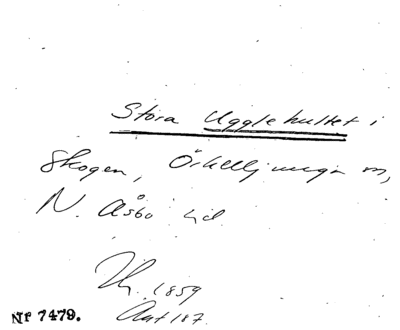 Stora Ugglehultet i
Skogen, Örkelljunga sn,
N. Åsbo hd
1859
Ant 187.
Nr 7479.